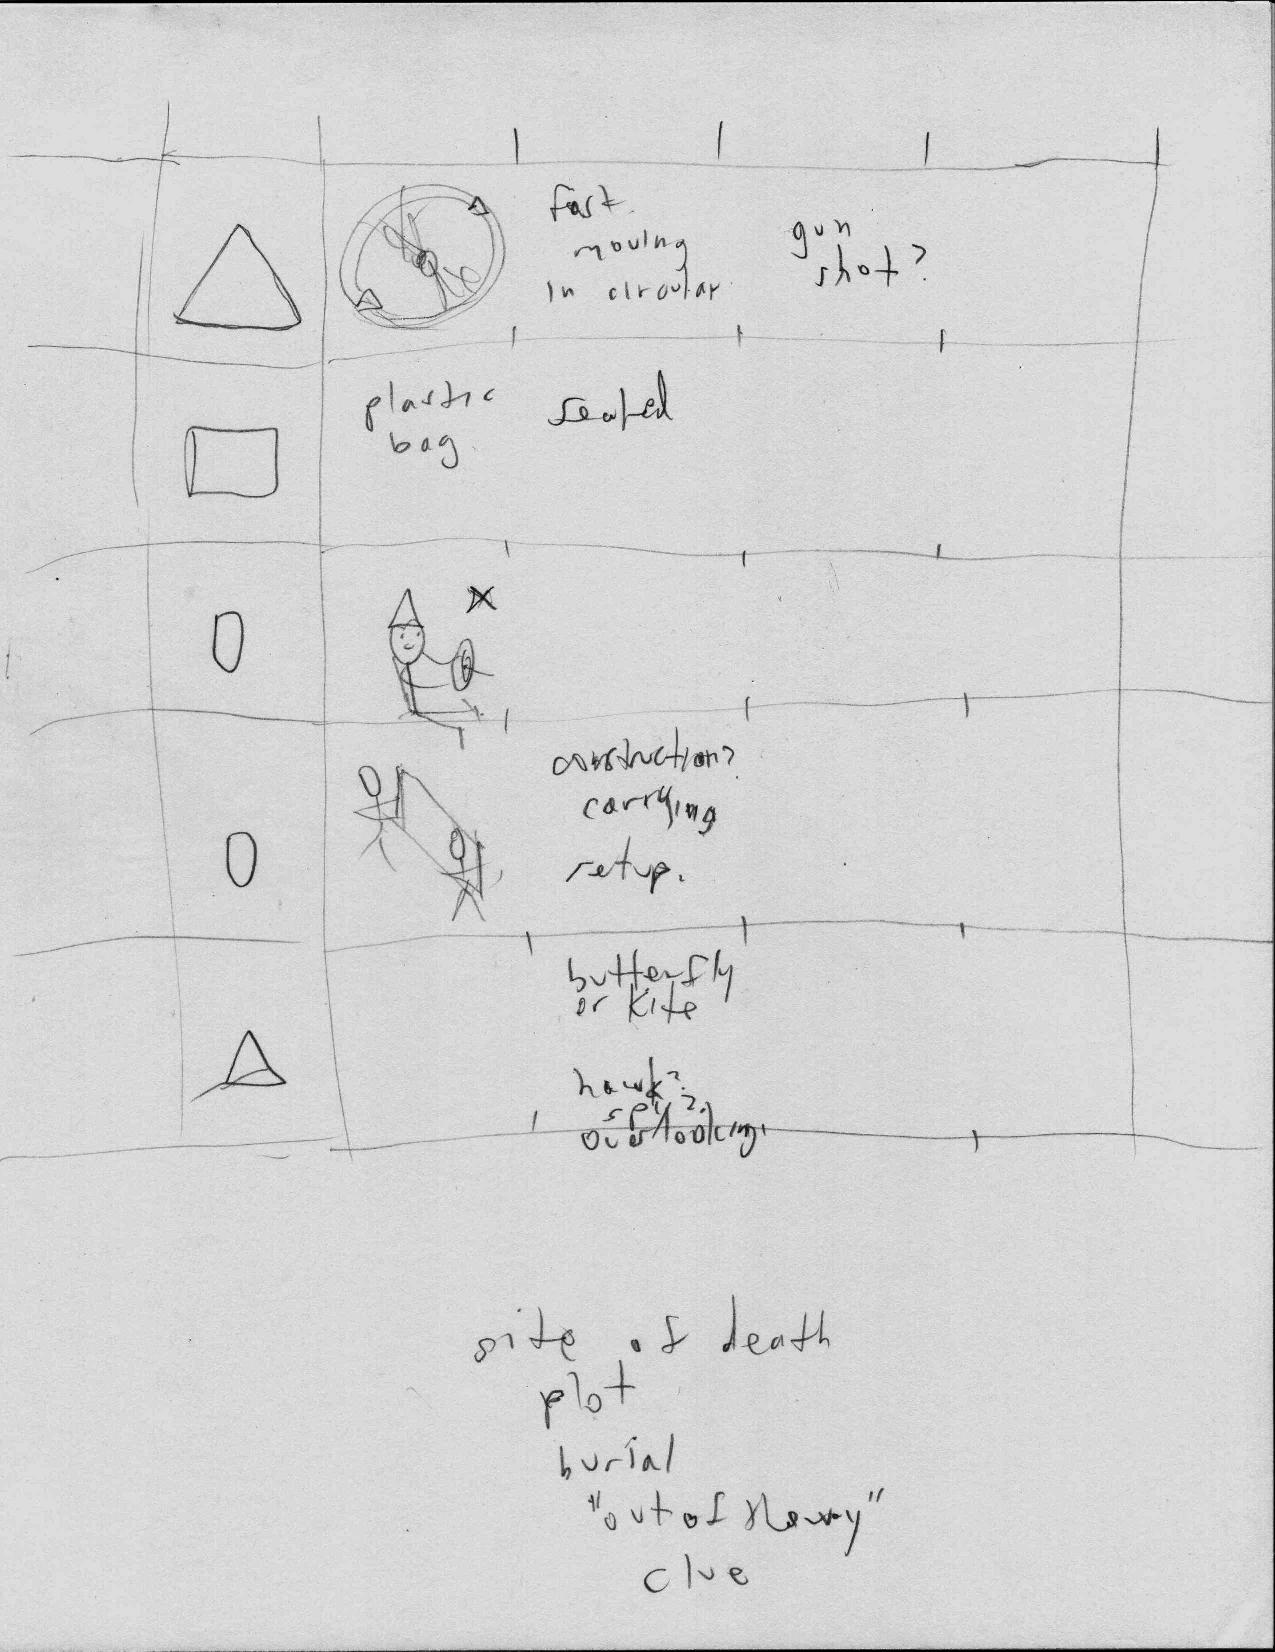 fast
moving
in circular
gun
shot?
plastic
bag
sealed
construction?
carrying
setup.
butterfly
or kite
hawk?
spy?
overlooking.
site of death
plot
burial
"out of the way"
clue